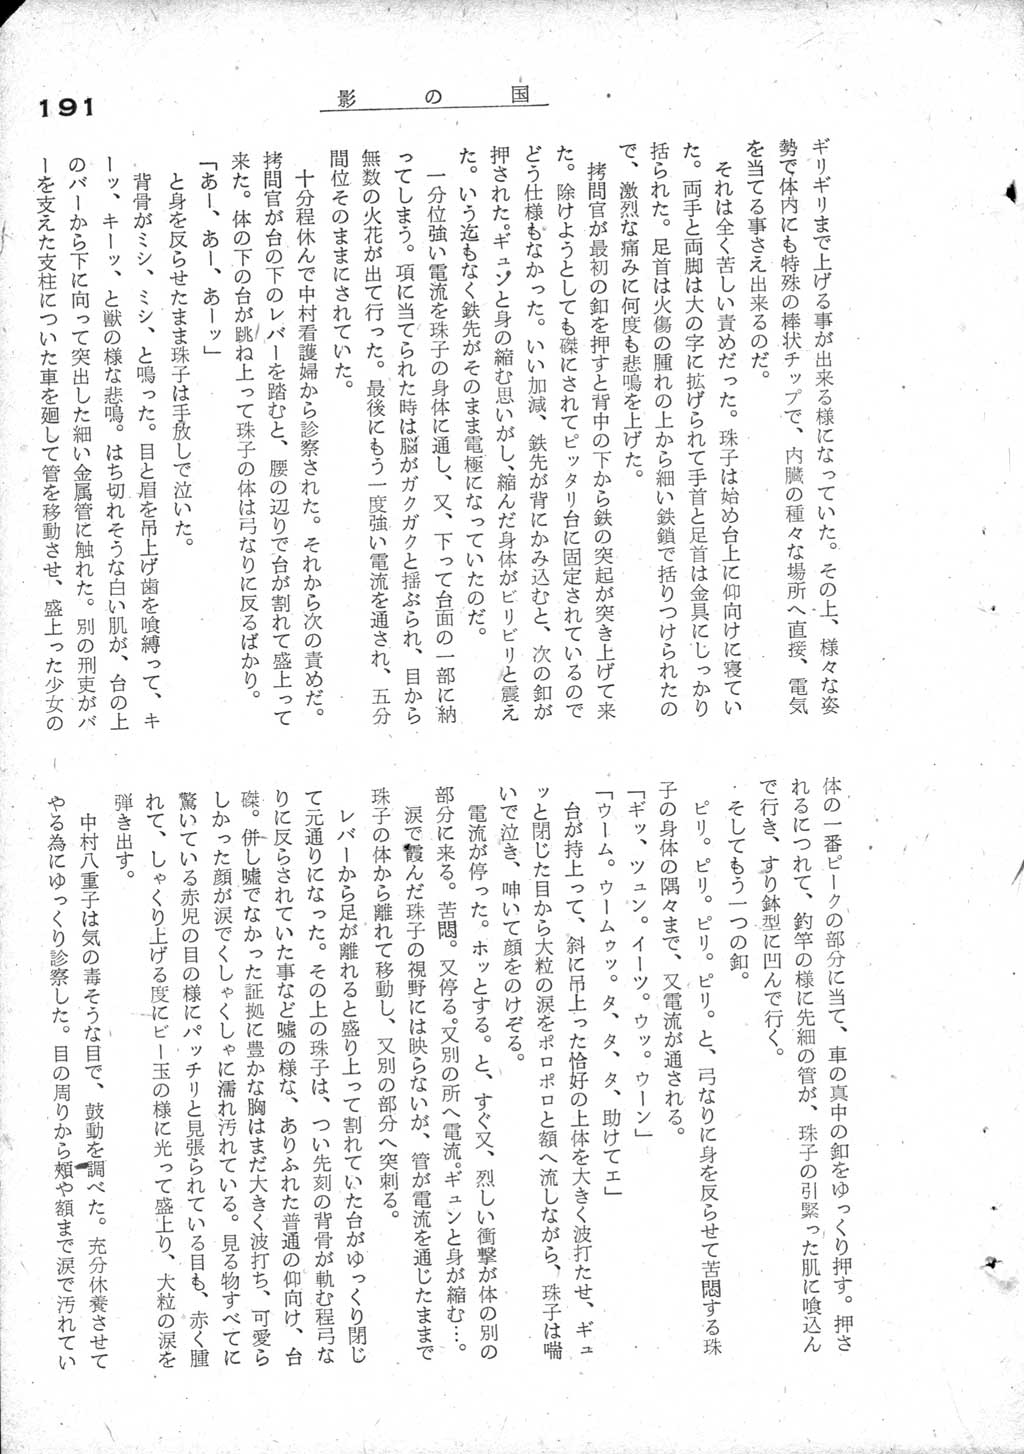 191
影の国
ギリギリまで上げる事が出来る様になっていた。その上、様々な姿
勢で体内にも特殊の棒状チップで、内臓の種々な場所へ直接、電気
を当てる事さえ出来るのだ。
それは全く苦しい責めだった。珠子は始め台上に仰向けに寝てい
た。両手と両脚は大の字に拡げられて手首と足首は金具にしっかり
括られた。足首は火傷の腫れの上から細い鉄鎖で括りつけられたの
で、激烈な痛みに何度も悲鳴を上げた。
拷問官が最初の釦を押すと背中の下から鉄の突起が突き上げて来
た。除けようとしても磔にされてピッタリ台に固定されているので
どう仕様もなかった。いい加減、鉄先が背にかみ込むと、次の釦が
押された。ギュンと身の縮む思いがし、縮んだ身体がビリビリと震え
た。いう迄もなく鉄先がそのまま電極になっていたのだ。
一分位強い電流を珠子の身体に通し、又、下って台面の一部に納
ってしまう。項に当てられた時は脳がガクガクと揺ぶられ、目から
無数の火花が出て行った。最後にもう一度強い電流を通され、五分
間位そのままにされていた。
十分程休んで中村看護婦から診察された。それから次の責めだ。
拷問官が台の下のレバーを踏むと、腰の辺りで台が割れて盛上って
来た。体の下の台が跳ね上って珠子の体は弓なりに反るばかり。
「あー、あー、あーッ」
と身を反らせたまま珠子は手放しで泣いた。
背骨がミシ、ミシ、と鳴った。目と眉を吊上げ歯を喰縛って、キ
ーッ、キーッ、と獣の様な悲鳴。はち切れそうな白い肌が、台の上
のバーから下に向って突出した細い金属管に触れた。別の刑吏がバ
ーを支えた支柱についた車を廻して管を移動させ、盛上った少女の
体の一番ピークの部分に当て、車の真中の釦をゆっくり押す。押さ
れるにつれて、釣竿の様に先細の管が、珠子の引緊った肌に喰込ん
で行き、すり鉢型に凹んで行く。
そしてもう一つの釦。
ピリ。ピリ。ピリ。ピリ。ピリ。と、弓なりに身を反らせて苦悶する珠
子の身体の隅々まで、又電流が通される。
「ギッ、ツュン。イーツ。ウッ。ウーン」
「ウーム。ウームゥッ。タ、タ、タ、助けてェ」
台が持上って、斜に吊上った恰好の上体を大きく波打たせ、ギュ
ッと閉じた目から大粒の涙をポロポロと額へ流しながら、珠子は喘
いで泣き、呻いて顔をのけぞる。
電流が停った。ホッとする。と、すぐ又、烈しい衝撃が体の別の
部分に来る。苦悶。又停る。又別の所へ電流。ギュンと身が縮む…。
涙で霞んだ珠子の視野には映らないが、管が電流を通じたままで
珠子の体から離れて移動し、又別の部分へ突刺る。
レバーから足が離れると盛り上って割れていた台がゆっくり閉じ
て元通りになった。その上の珠子は、つい先刻の背骨が軌む程弓な
りに反らされていた事など嘘の様な、ありふれた普通の仰向け、台
磔。併し嘘でなかった証拠に豊かな胸はまだ大きく波打ち、可愛ら
しかった顔が涙でくしゃくしゃに濡れ汚れている。見る物すべてに
驚いている赤児の目の様にパッチリと見張られている目も、赤く腫
れて、しゃくり上げる度にビー玉の様に光って盛上り、大粒の涙を
弾き出す。
中村八重子は気の毒そうな目で、鼓動を調べた。充分休養させて
やる為にゆっくり診察した。目の周りから頬や額まで涙で汚れてい